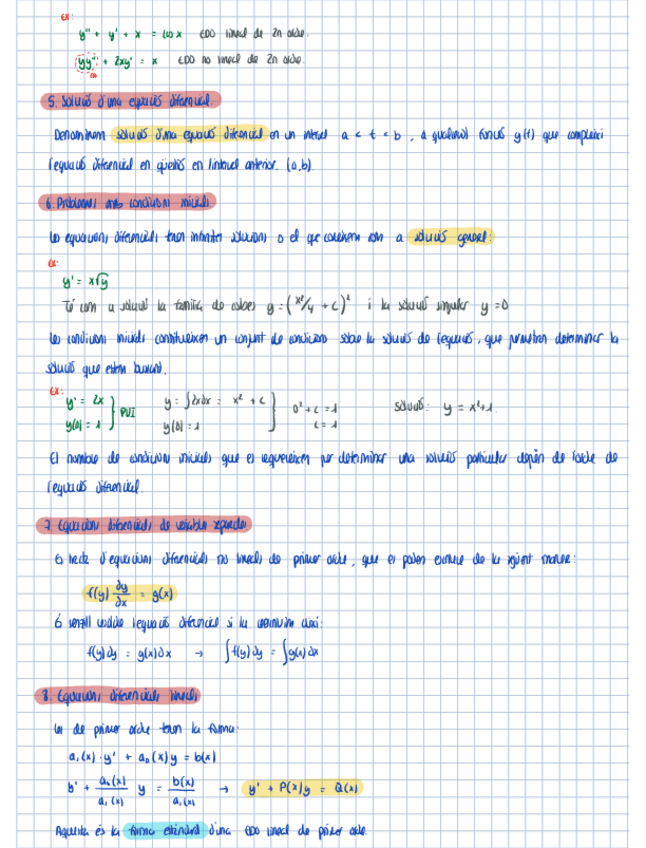 Ex:
y'' + y' + x = cos x EDO lineal de 2n ordre.
yy'' + 2xy' = x EDO no lineal de 2n ordre.
no
5. Solució d'una equació diferencial.
Denominem solució d'una equació diferencial en un interval a < t < b, a qualsevol funció y(t) que compleixi
l'equació diferencial en qüestió en l'interval anterior. (a,b).
6. Problemes amb condicions inicials
Les equacions diferencials tenen infinites solucions o el que coneixem com a solució general:
Ex:
y' = x√y
Té com a solució la família de corbes y = (x²/4 + C)² i la solució singular y = 0
Les condicions inicials constitueixen un conjunt de condicions sobre la solució de l'equació, que permeten determinar la
solució que estem buscant.
Ex:
y' = 2x
y(0) = 1 } PVI
y = ∫2xdx = x² + C
y(0) = 1
0² + C = 1
C = 1
Solució: y = x²+1.
El nombre de condicions inicials que es requereixen per determinar una solució particular depèn de l'ordre de
l'equació diferencial.
7. Equacions diferencials de variables separades
Es tracta d'equacions diferencials no lineals de primer ordre, que es poden escriure de la següent manera:
f(y) dy/dx = g(x)
És senzill resoldre l'equació diferencial si la reescrivim així:
f(y)dy = g(x)dx → ∫f(y)dy = ∫g(x)dx
8. Equacions diferencials lineals
Les de primer ordre tenen la forma:
a₁(x)·y' + a₀(x)y = b(x)
y' + a₀(x)/a₁(x) y = b(x)/a₁(x) → y' + P(x)y = Q(x)
Aquesta és la forma estàndard d'una EDO lineal de primer ordre.